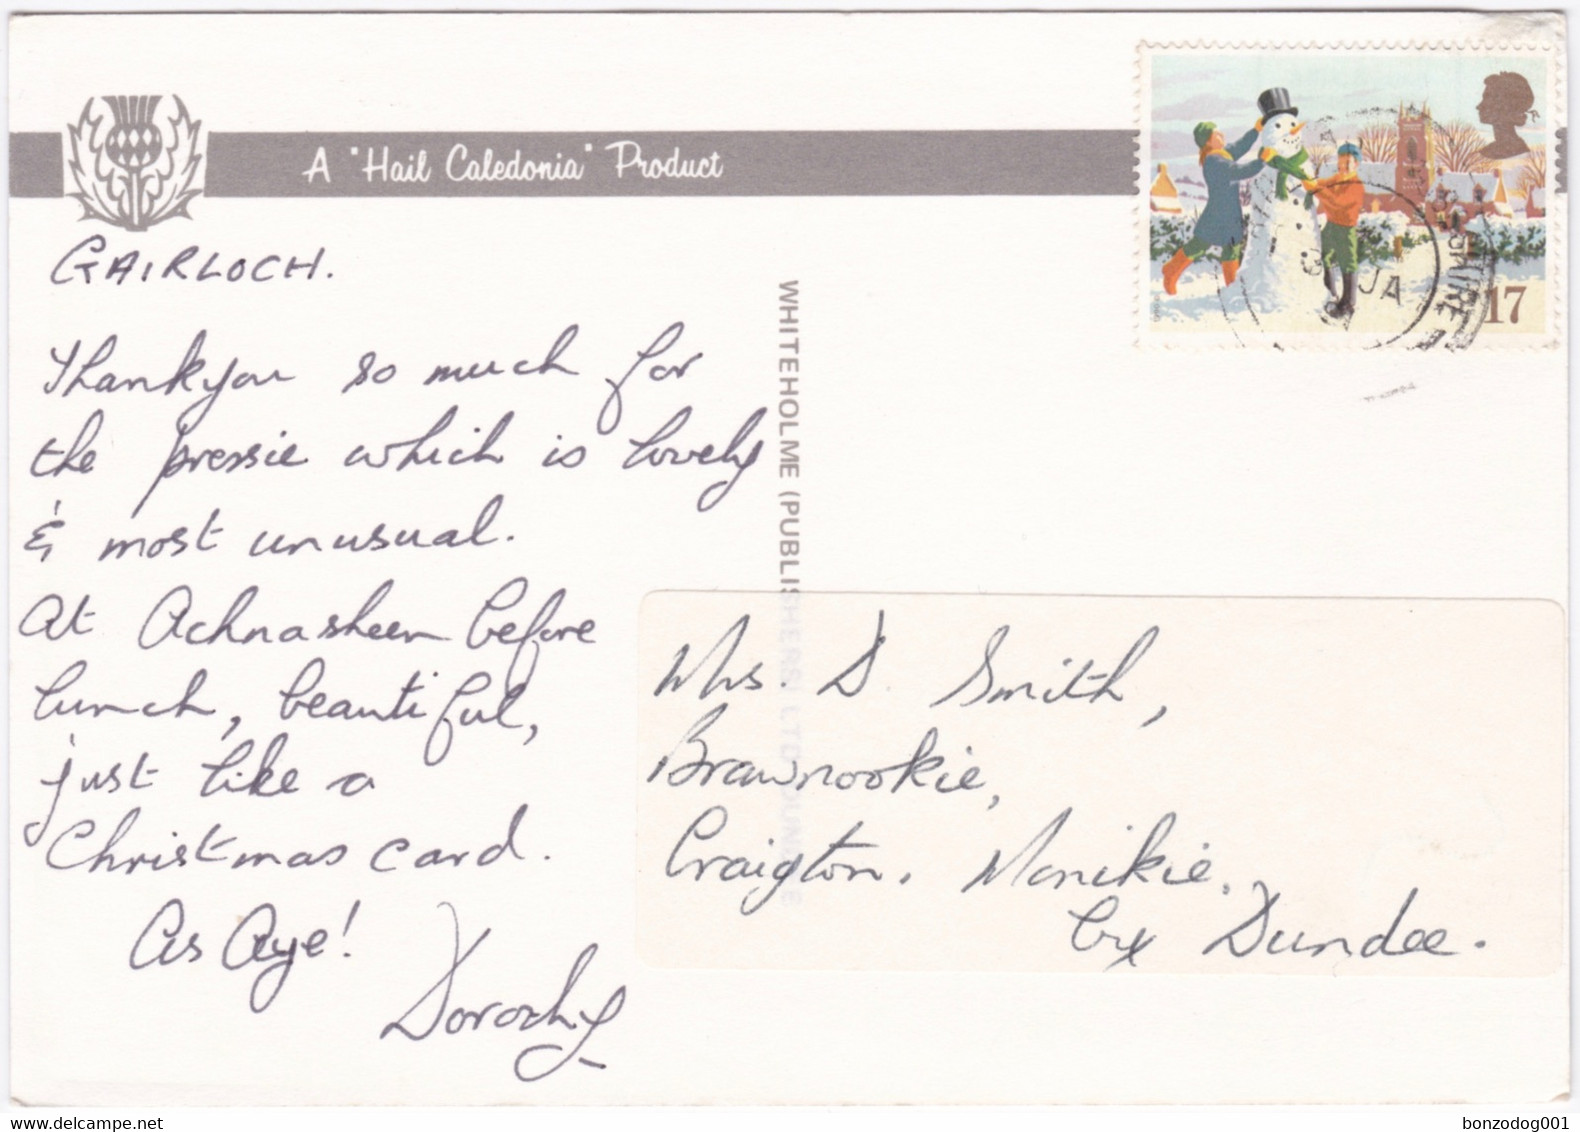 A "Hail Caledonia" Product
GAIRLOCH.
Thankyou so much for
the pressie which is lovely
& most unusual.
At Achnasheen before
lunch, beautiful,
just like a
Christmas card.
As Aye!
Dorothy
WHITEHOLME (PUBLISHERS) LTD DUNDEE
17
JA
Mrs. D Smith,
Brawnookie,
Craigton. Monikie.
By Dundee.
www.delcampe.net
bonzodog001